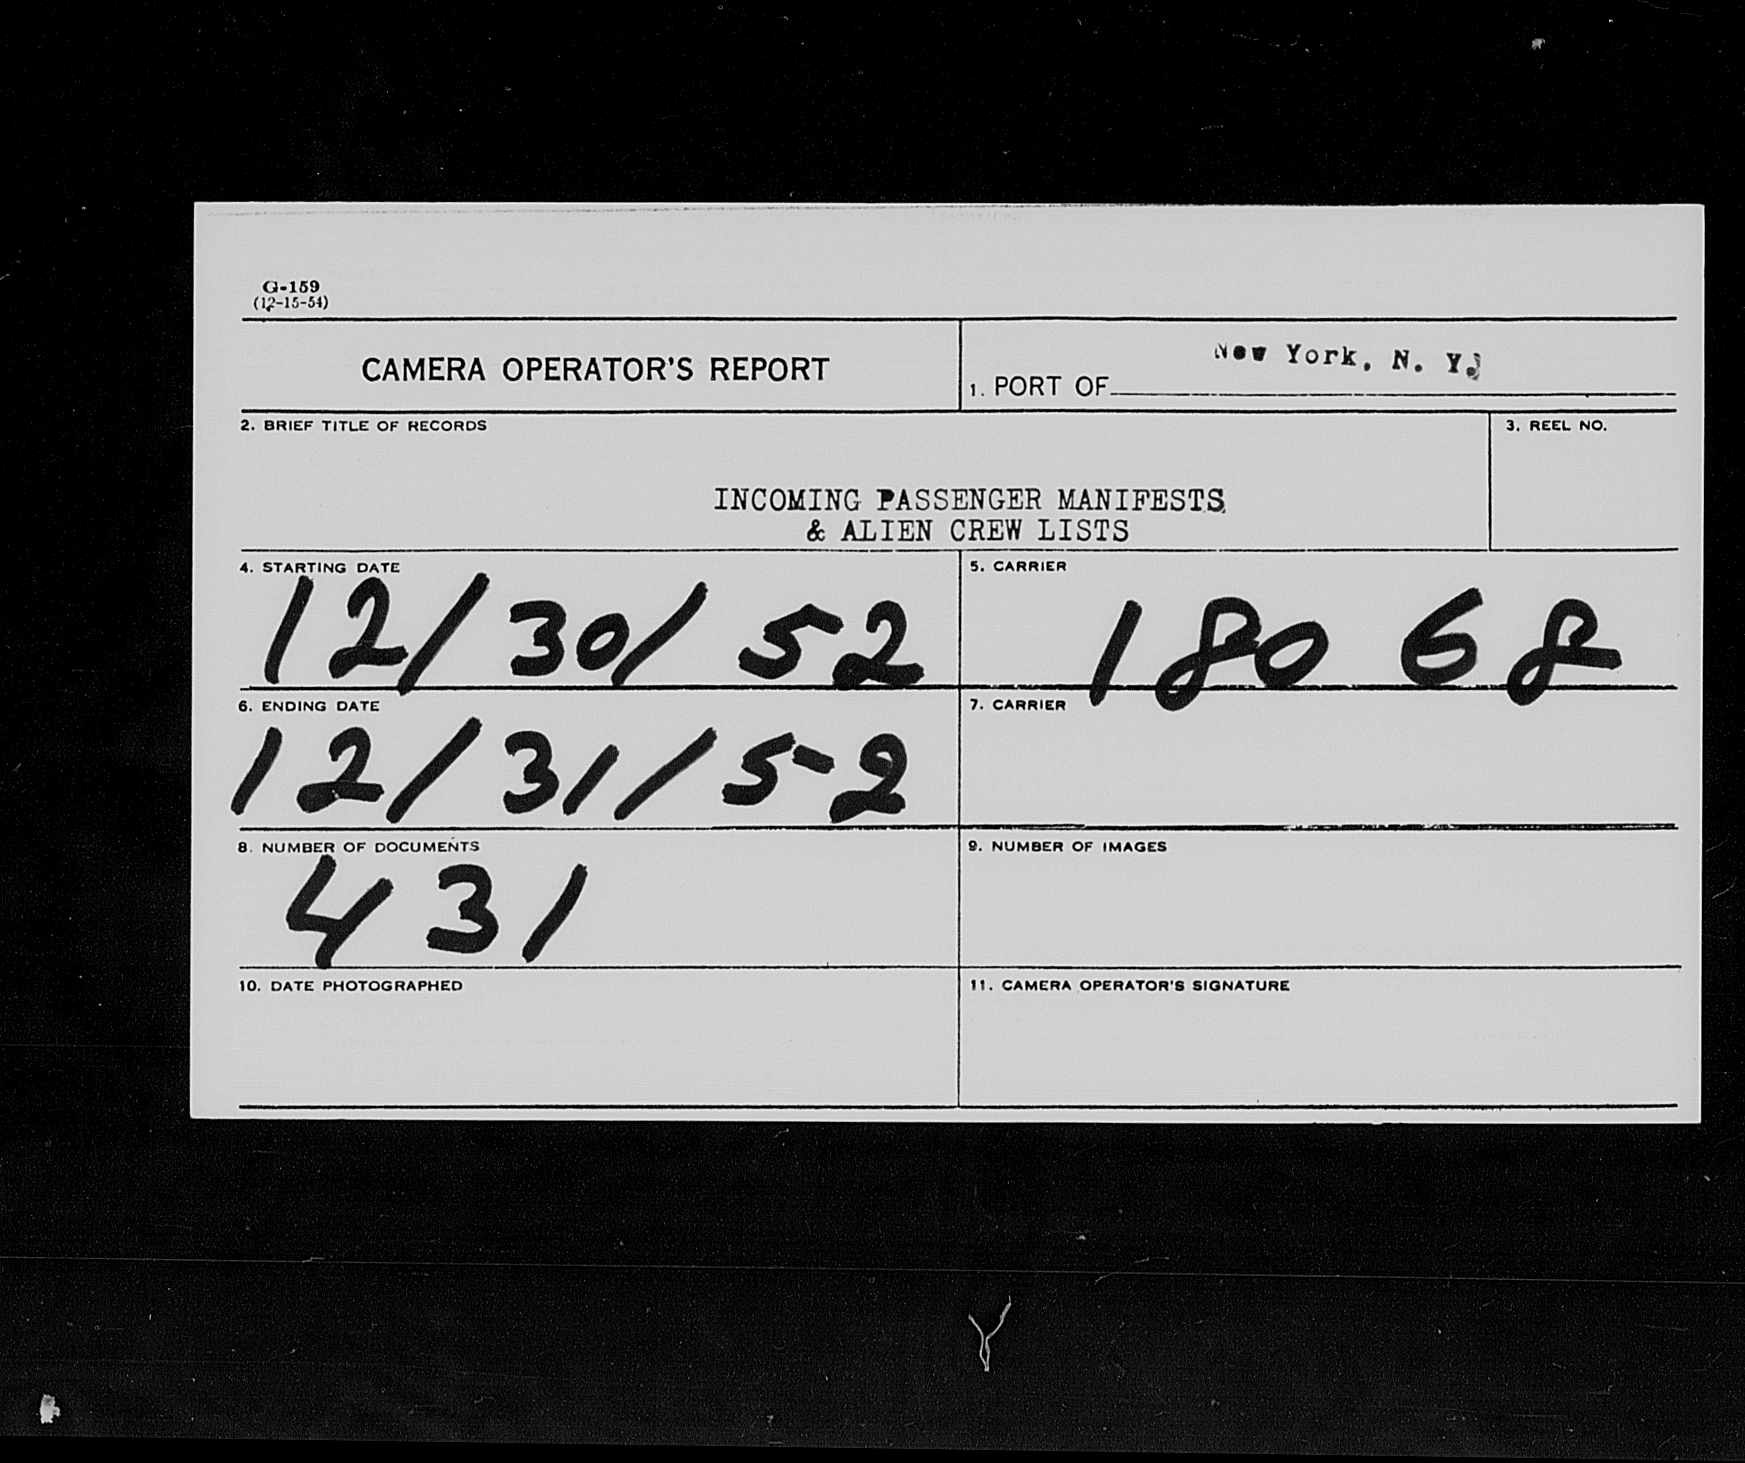 G-159
(12-15-54)
CAMERA OPERATOR'S REPORT
1. PORT OF New York, N. Y.
2. BRIEF TITLE OF RECORDS
3. REEL NO.
INCOMING PASSENGER MANIFESTS
& ALIEN CREW LISTS
4. STARTING DATE
12/30/52
5. CARRIER
180 68
6. ENDING DATE
12/31/52
7. CARRIER
8. NUMBER OF DOCUMENTS
431
9. NUMBER OF IMAGES
10. DATE PHOTOGRAPHED
11. CAMERA OPERATOR'S SIGNATURE